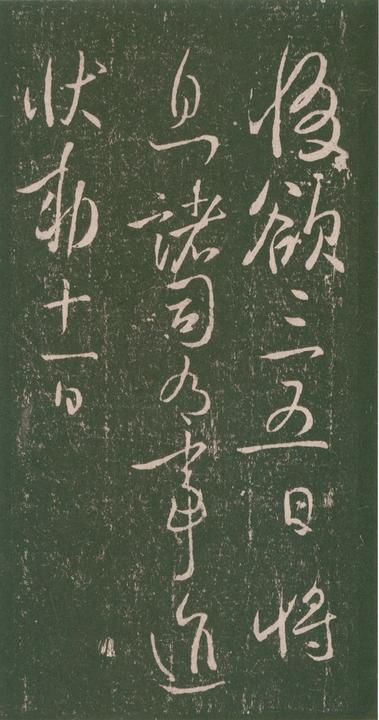 欲三五日將
息諸司有事進
狀勅十一日